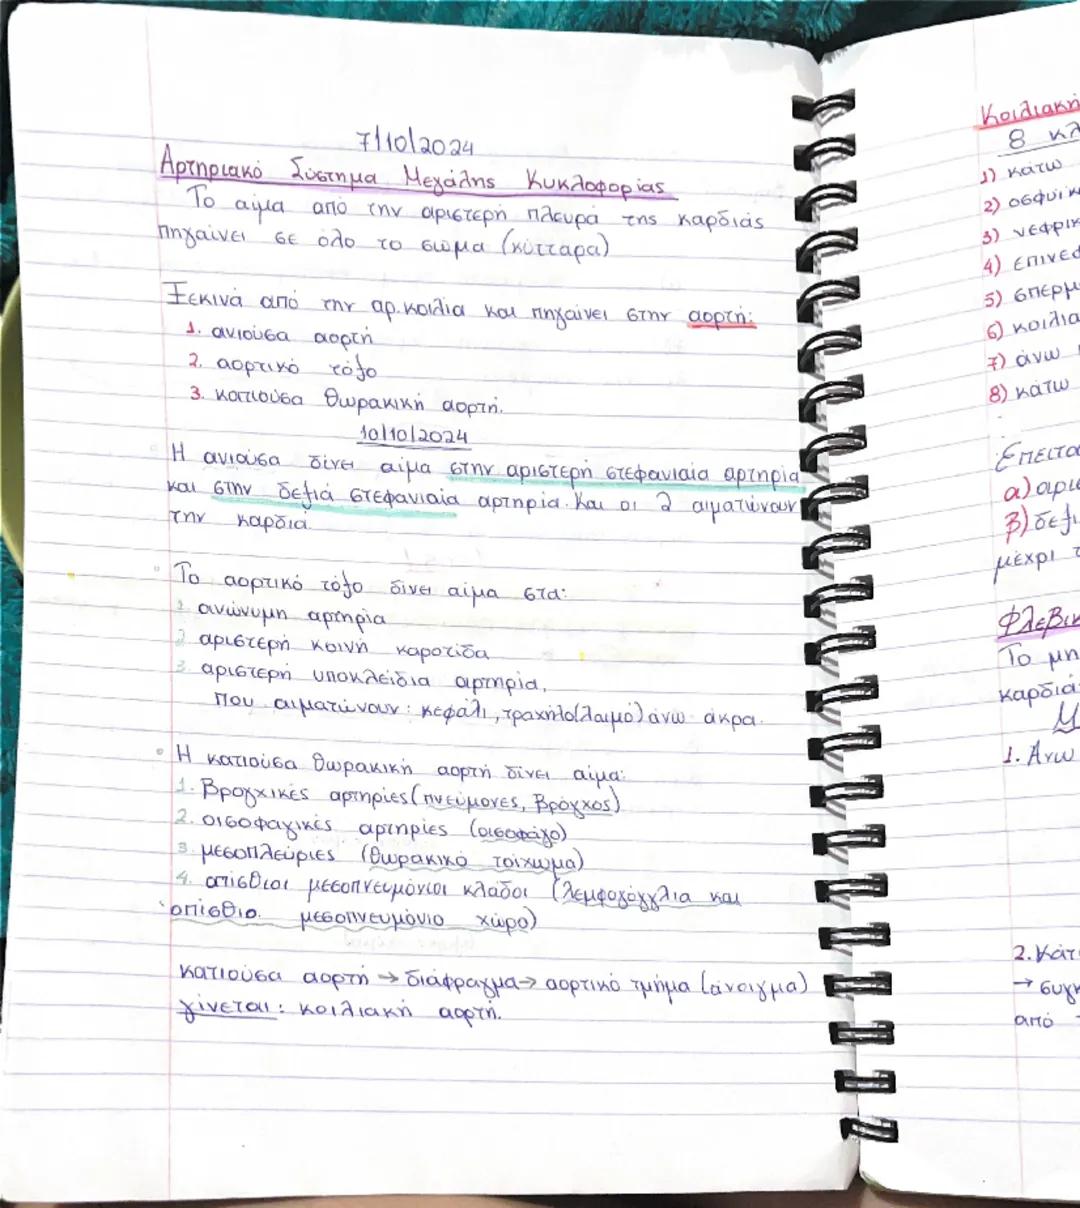 7/10/2024
Αρτηριακό Σύστημα Μεγάλης Κυκλοφορίας
Το αίμα από την αριστερή πλευρά της καρδιάς
πηγαίνει σε όλο το σώμα (κύτταρα)
Ξεκινά από την αρ. κοιλία και πηγαίνει στην αορτή:
1. ανιούσα αορτή
2. αορτικό τόξο
3. κατιούσα θωρακική αορτή.
10/10/2024
Η ανιούσα δίνει αίμα στην αριστερή στεφανιαία αρτηρία
και στην δεξιά στεφανιαία αρτηρία. Και οι 2 αιματώνουν
την καρδιά.
Το αορτικό τόξο δίνει αίμα στα:
1. ανώνυμη αρτηρία
2. αριστερή κοινή καροτίδα
3. αριστερή υποκλείδια αρτηρία.
που αιματώνουν: κεφάλι, τράχηλο(λαιμό) άνω άκρα.
Η κατιούσα θωρακική αορτή δίνει αίμα:
1. Βρογχικές αρτηρίες (πνεύμονες, Βρόγχος)
2. οισοφαγικές αρτηρίες (οισοφάγο)
3. μεσοπλεύριες (θωρακικό τοίχωμα)
4. οπίσθιοι μεσοπνευμόνιοι κλάδοι (λεμφογάγγλια και
οπίσθιο μεσοπνευμόνιο χώρο)
κατιούσα αορτή → διάφραγμα → αορτικό τμήμα (άνοιγμα)
γίνεται: κοιλιακή αορτή.
Κοιλιακή
8 κλ
1) κάτω
2) οσφυικ
3) νεφρικ
4) επινεφ
5) σπερμ
6) κοιλια
7) άνω
8) κάτω
Έπειτα
α) αρι
β) δεξι
μέχρι τ
Φλεβικ
Το μη
καρδιά
1. Άνω
2. Κάτ
→ συγκ
από